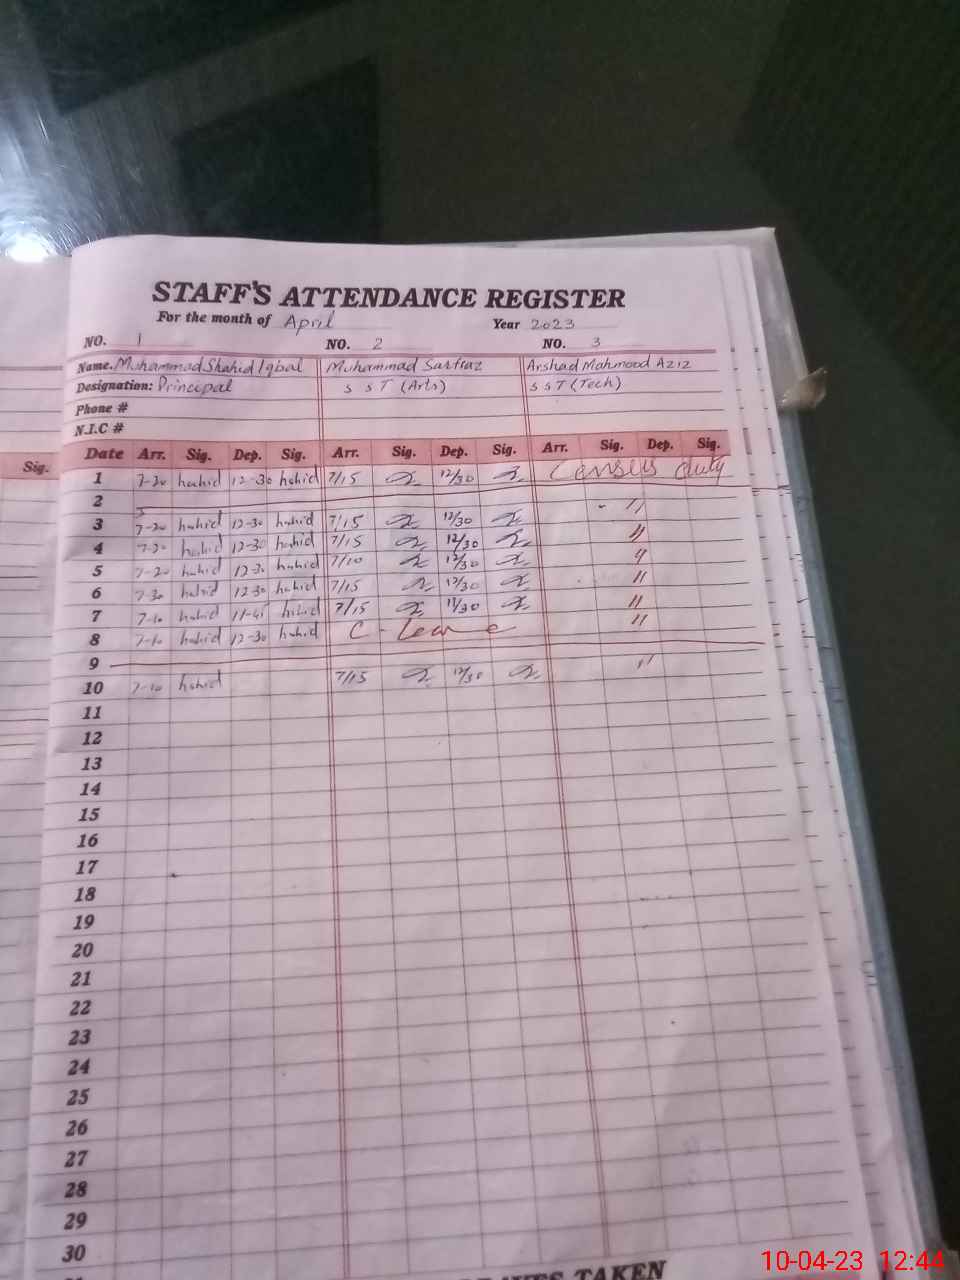 STAFF'S ATTENDANCE REGISTER
For the month of April Year 2023
NO. 1 NO. 2 NO. 3
Name. Muhammad Shahid Iqbal Muhammad Sarfraz Arshad Mahmood Aziz
Designation: Principal S S T (Arts) S S T (Tech)
Phone #
N.I.C #
Sig. Date Arr. Sig. Dep. Sig. Arr. Sig. Dep. Sig. Arr. Sig. Dep. Sig.
1 7-20 hahid 12-30 hahid 7/15 12/30 Census duty
2 "
3 7-20 hahid 12-30 hahid 7/15 12/30 "
4 7-20 hahid 12-30 hahid 7/15 12/30 "
5 7-20 hahid 12-30 hahid 7/10 12/30 "
6 7-30 hahid 12-30 hahid 7/15 12/30 "
7 7-10 hahid 11-45 hahid 7/15 11/30 "
8 7-10 hahid 12-30 hahid C-Leave "
9 "
10 7-10 hahid 7/15 12/30
11
12
13
14
15
16
17
18
19
20
21
22
23
24
25
26
27
28
29
30
TAKEN
10-04-23 12:44